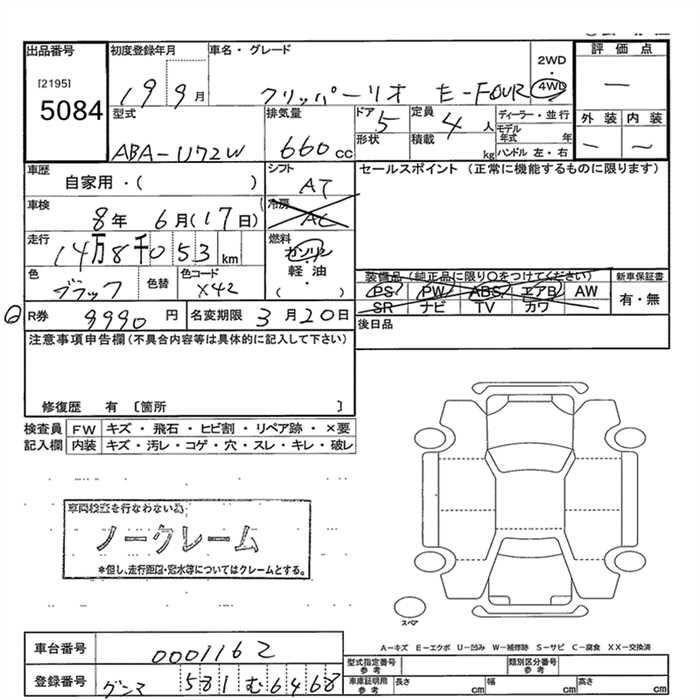 出品番号 初度登録年月 車名・グレード 2WD ・ 4WD 評価点
[2195]
5084
19 9月 クリッパーリオ E-FOUR —
型式 排気量 ドア 定員 ディーラー・並行 外装 内装
ABA-U72W 660cc 5 4人 モデル年式 年 — —
形状 積載 kg ハンドル 左・右
車歴 シフト セールスポイント (正常に機能するものに限ります)
自家用・( ) AT
車検 冷房
8年 6月(17日) AC
走行 燃料
14万8千053km ガソリン
・
色 色替 色コード 軽油 装備品(純正品に限り○をつけてください) 新車保証書
ブラック X42 ・ PS PW ABS エアB AW 有・無
( ) SR ナビ TV カワ
R券 9990円 名変期限 3月20日 後日品
注意事項申告欄(不具合内容等は具体的に記入して下さい)
修復歴 有 [箇所 ]
検査員 FW キズ・飛石・ヒビ割・リペア跡・×要
記入欄 内装 キズ・汚レ・コゲ・穴・スレ・キレ・破レ
車両検査を行なわない為
ノークレーム
*但し、走行距離・冠水等についてはクレームとする。
スペア
A-キズ E-エクボ U-凹み W-補修跡 S-サビ C-腐食 XX-交換済
車台番号 0001162 型式指定番号 参考 類別区分番号 参考
登録番号 グンマ 581む6468 車庫証明用 参考 長さ cm 幅 cm 高さ cm